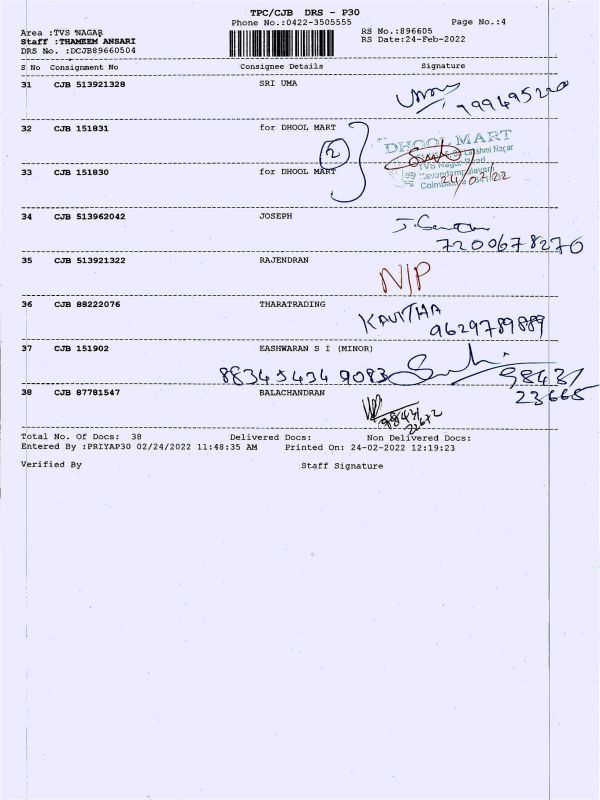 TPC/CJB DRS - P30
Phone No.:0422-3505555
Page No.:4
Area :TVS NAGAR
Staff :THAMEEM ANSARI
DRS No. :DCJB89660504
RS No.:896605
RS Date:24-Feb-2022
S No Consignment No Consignee Details Signature
31 CJB 513921328 SRI UMA
Uma
32 CJB 151831 for DHOOL MART
2
DHOOL MART
Lakshmi Nagar
TVS Nagar Road
Kavundampalayam
Coimbatore
24/02/22
33 CJB 151830 for DHOOL MART
34 CJB 513962042 JOSEPH
7200678270
35 CJB 513921322 RAJENDRAN
N/P
36 CJB 88222076 THARATRADING
KAVITHA
9629789889
37 CJB 151902 EASHWARAN S I (MINOR)
98431
23665
38 CJB 87781547 BALACHANDRAN
Total No. Of Docs: 38 Delivered Docs: Non Delivered Docs:
Entered By :PRIYAP30 02/24/2022 11:48:35 AM Printed On: 24-02-2022 12:19:23
Verified By Staff Signature